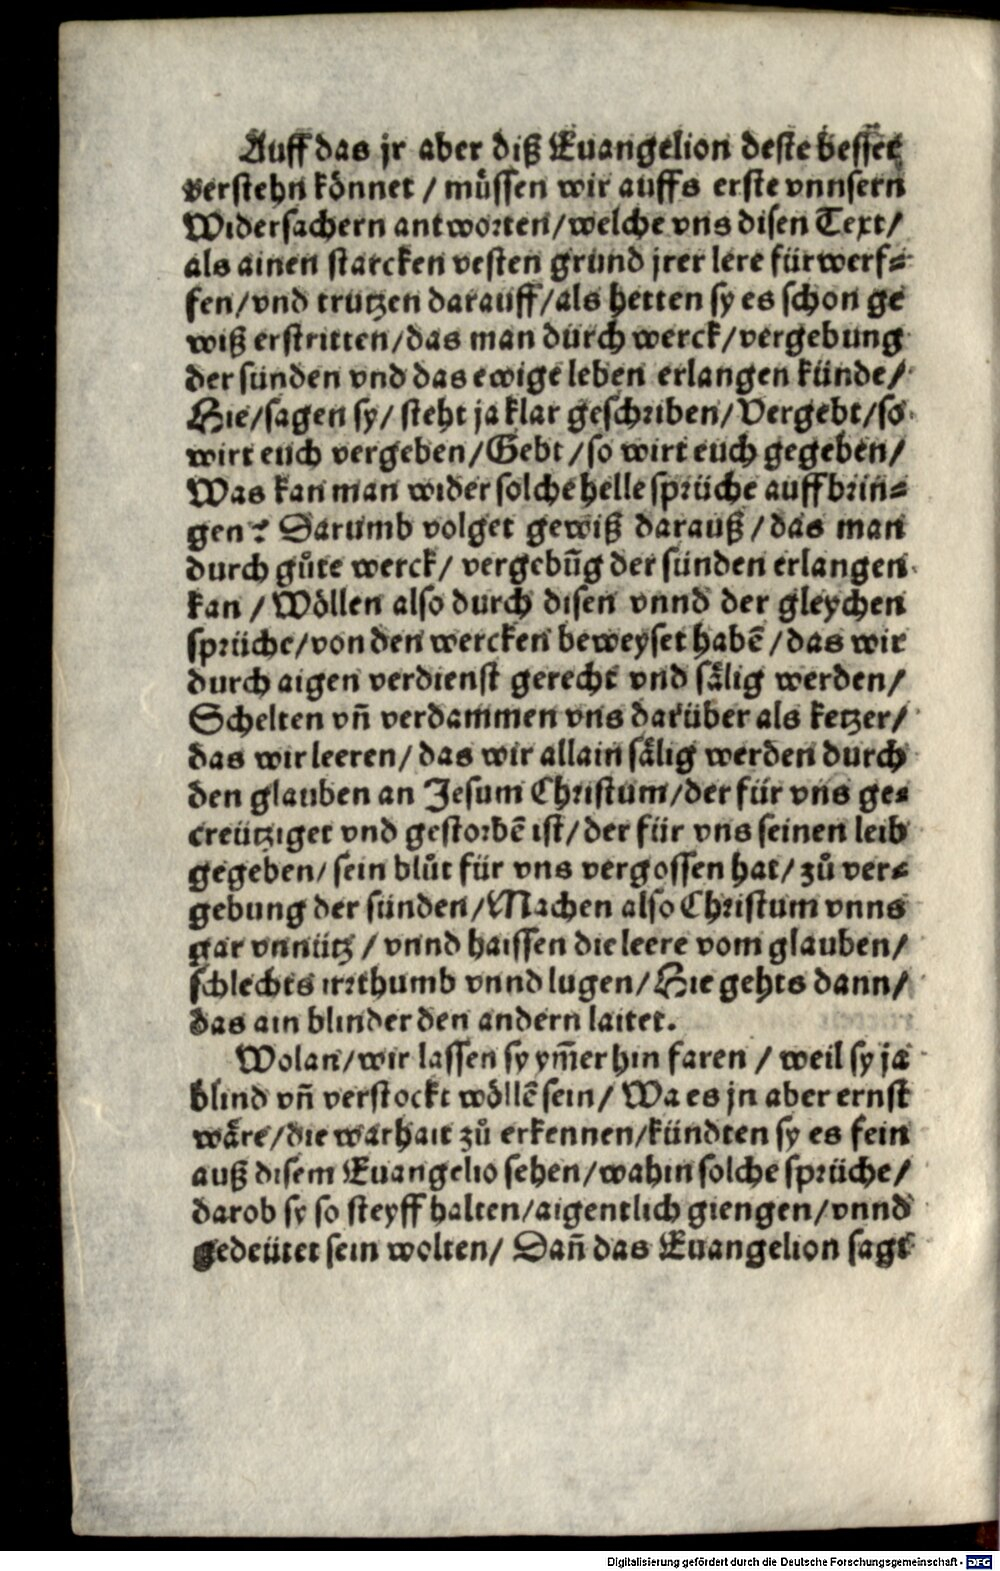 Auff das jr aber diß Euangelion deste besser
verstehn könnet / müssen wir auffs erste vnnsern
Widersachern antworten/welche vns disen Text/
als ainen starcken vesten grund jrer lere fürwerf⸗
fen/vnd trutzen darauff/als hetten sy es schon ge
wiß erstritten/das man durch werck/vergebung
der sünden vnd das ewige leben erlangen künde/
Hie/sagen sy/ steht ja klar geschriben/Vergebt/so
wirt euch vergeben/Gebt/so wirt euch gegeben/
Was kan man wider solche helle sprüche auffbrin⸗
gen? Darumb volget gewiß darauß/das man
durch gůte werck/ vergebūg der sünden erlangen
kan / Wöllen also durch disen vnnd der gleychen
sprüche/von den wercken beweyset habē/das wir
durch aigen verdienst gerecht vnd sälig werden/
Schelten vn̄ verdammen vns darüber als ketzer/
das wir leeren/das wir allain sälig werden durch
den glauben an Jesum Christum/der für vns ge⸗
creütziget vnd gestorbē ist/der für vns seinen leib
gegeben/sein blůt für vns vergossen hat/ zů ver⸗
gebung der sünden/Machen also Christum vnns
gar vnnütz / vnnd haissen die leere vom glauben/
schlechts irrthumb vnnd lugen/Hie gehts dann/
das ain blinder den andern laitet.
Wolan/wir lassen sy ym̄er hin faren / weil sy ja
blind vn̄ verstockt wöllē sein/ Wa es jn aber ernst
wäre/die warhait zů erkennen/kündten sy es fein
auß disem Euangelio sehen/wahin solche sprüche/
darob sy so steyff halten/aigentlich giengen/vnnd
gedeütet sein wolten/ Dan̄ das Euangelion sagt
Digitalisierung gefördert durch die Deutsche Forschungsgemeinschaft - DFG